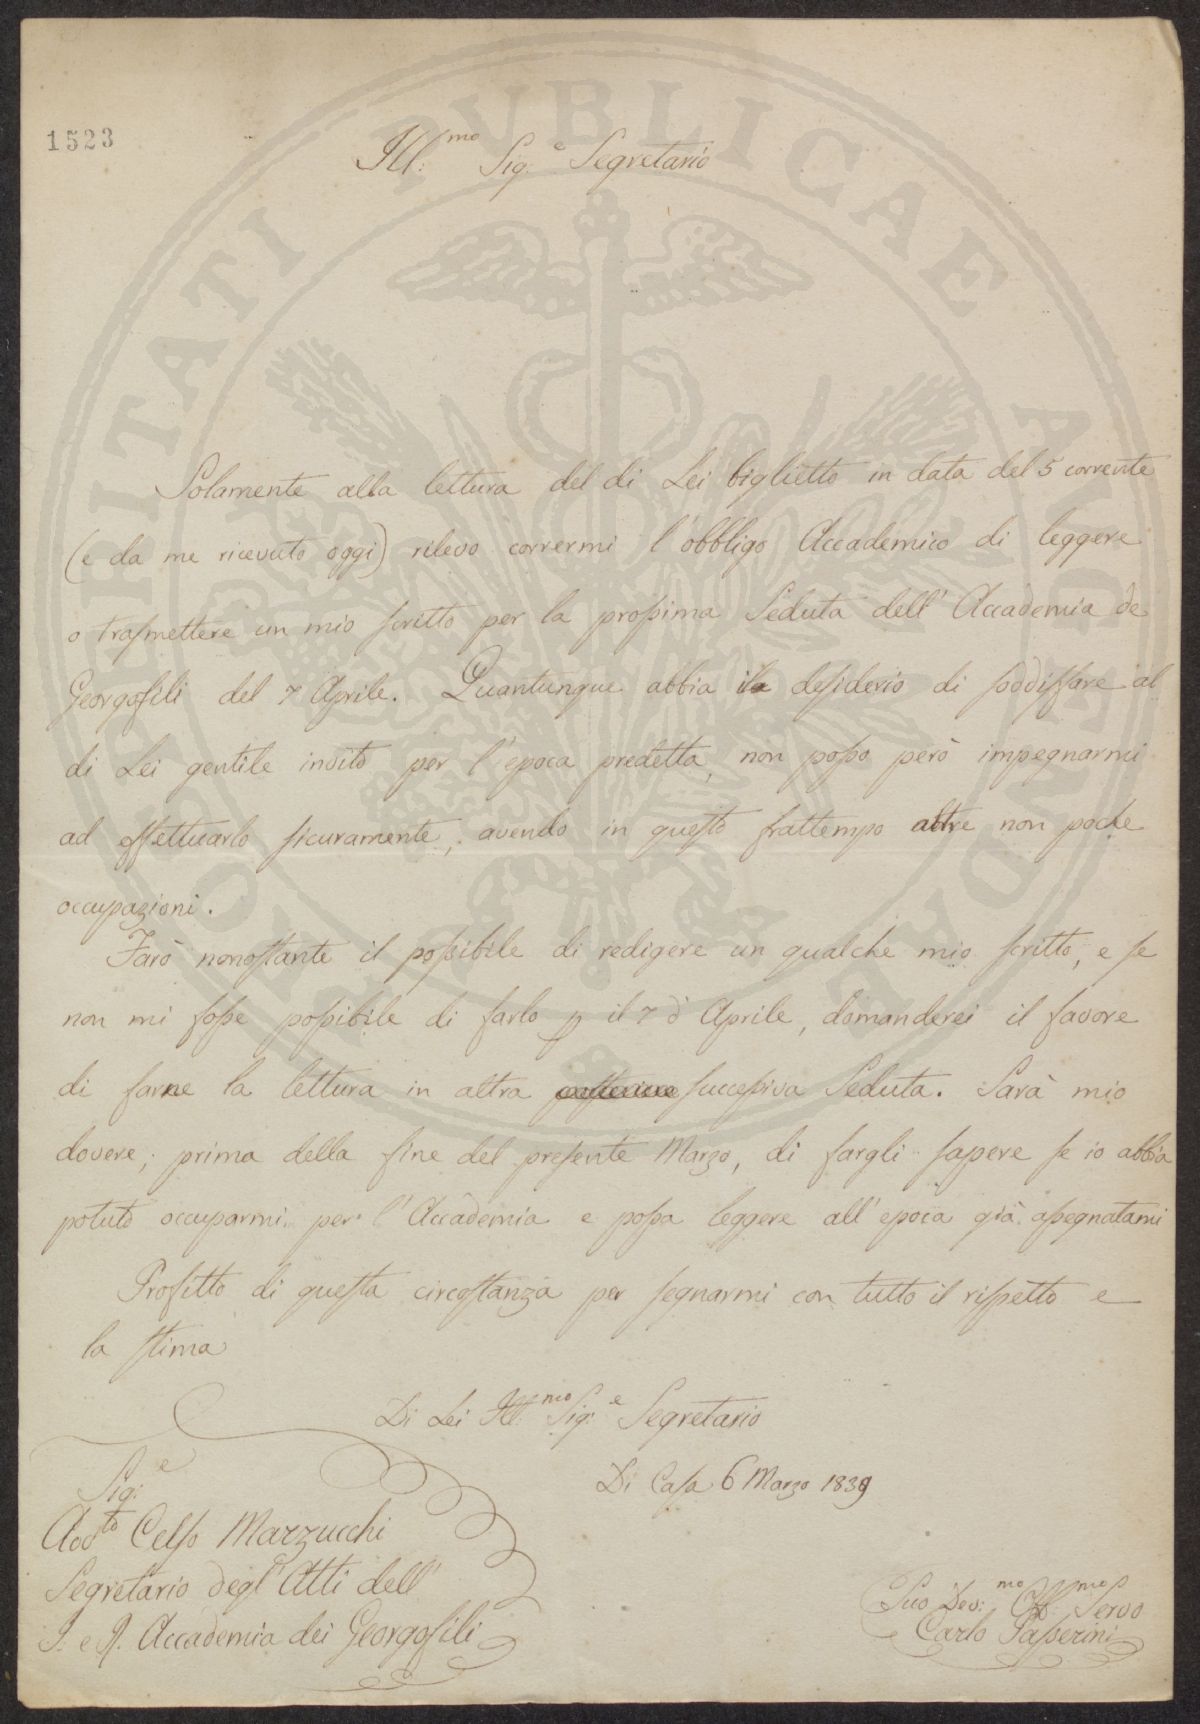 1523
Ill:mo Sig.e Segretario
Solamente alla lettura del di Lei biglietto in data del 5 corrente
(e da me ricevuto oggi) rilevo corrermi l'obbligo Accademico di leggere
o trasmettere un mio scritto per la prossima Seduta dell'Accademia de
Georgofili del 7 Aprile. Quantunque abbia il desiderio di soddisfare al
di Lei gentile invito per l'epoca predetta, non posso però impegnarmi
ad effettuarlo sicuramente, avendo in questo frattempo altre non poche
occupazioni.
Farò nonostante il possibile di redigere un qualche mio scritto, e se
non mi fosse possibile di farlo p il 7 d'Aprile, domanderei il favore
di farne la lettura in altra successiva Seduta. Sarà mio
dovere, prima della fine del presente Marzo, di fargli sapere se io abbia
potuto occuparmi per l'Accademia e possa leggere all'epoca già assegnatami
Profitto di questa circostanza per segnarmi con tutto il rispetto e
la stima
Di Lei Ill:mo Sig:e Segretario
Di Casa 6 Marzo 1839
Sig:e
Avv:to Celso Marzucchi
Segretario degl'Atti dell'
I. e R. Accademia dei Georgofili
Suo Dev:mo Obb:mo Servo
Carlo Passerini
PROSPERITATI PUBLICAE AUGENDAE